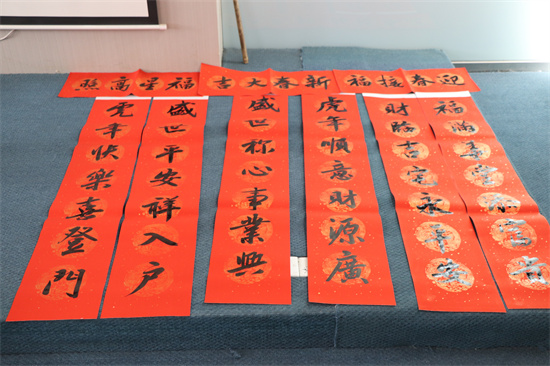 迎春接福
新春大吉
福星高照
福臨
財臨吉宅永
虎年順意財源廣
盛世称心事業興
盛世平安祥入户
虎年快樂喜登門